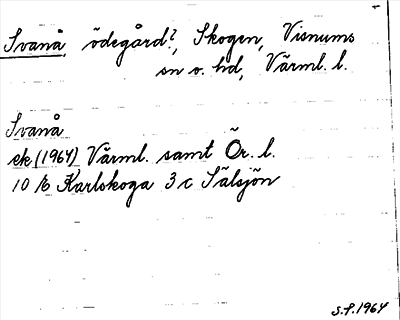 Svanå ödegård?, Skogen, Visnums
sn o. hd, Värml. l.
Svanå
ek (1964) Värml. samt Ör. l.
10 E Karlskoga 3 c Sälsjön
S.P. 1964